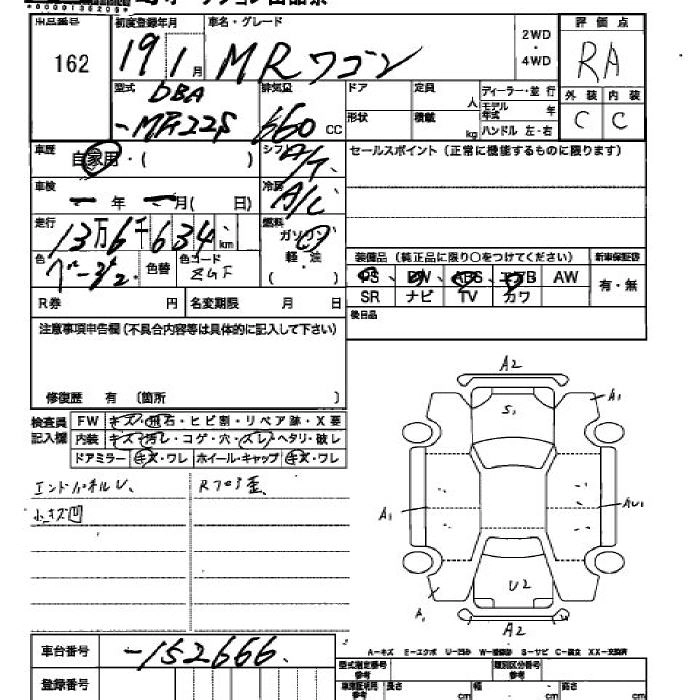 *0000136208*
出品番号 初度登録年月 車名・グレード 2WD・4WD 評価点
162 19 1月 MRワゴン RA
型式 DBA -MF22S 排気量 660 CC ドア 定員 人 ディーラー・並行
形状 積載 kg モデル年式 年 ハンドル 左・右 外装 内装
C C
車歴 自家用・( ) シフト A/T セールスポイント(正常に機能するものに限ります)
車検 ー年 ー月( 日) 冷房 A/C
走行 13万6千634km 燃料 ガソリン・軽・油 ( )
色 ベージュ 色替 色コード ZGF 装備品(純正品に限り○をつけてください) 新車保証書
PS PW ABS エアB AW 有・無
R券 円 名変期限 月 日 SR ナビ TV カワ
後日品
注意事項申告欄(不具合内容等は具体的に記入して下さい)
修復歴 有 〔箇所 〕
検査員記入欄 FW キズ・飛石・ヒビ割・リペア跡・X要
内装 キズ・汚レ・コゲ・穴・スレ・ヘタリ・破レ
ドアミラー キズ・ワレ ホイール・キャップ キズ・ワレ
エンドパネルU、 Rフロア歪
小キズ凹
A2
S1
A1
A1
AU1
U2
A1
A2
A-キズ E-エクボ U-凹み W-補修跡 S-サビ C-腐食 XX-交換済
車台番号 -152666.
登録番号
型式指定番号 参考 類別区分番号 参考
車車証明用 参考 長さ cm 幅 cm 高さ cm